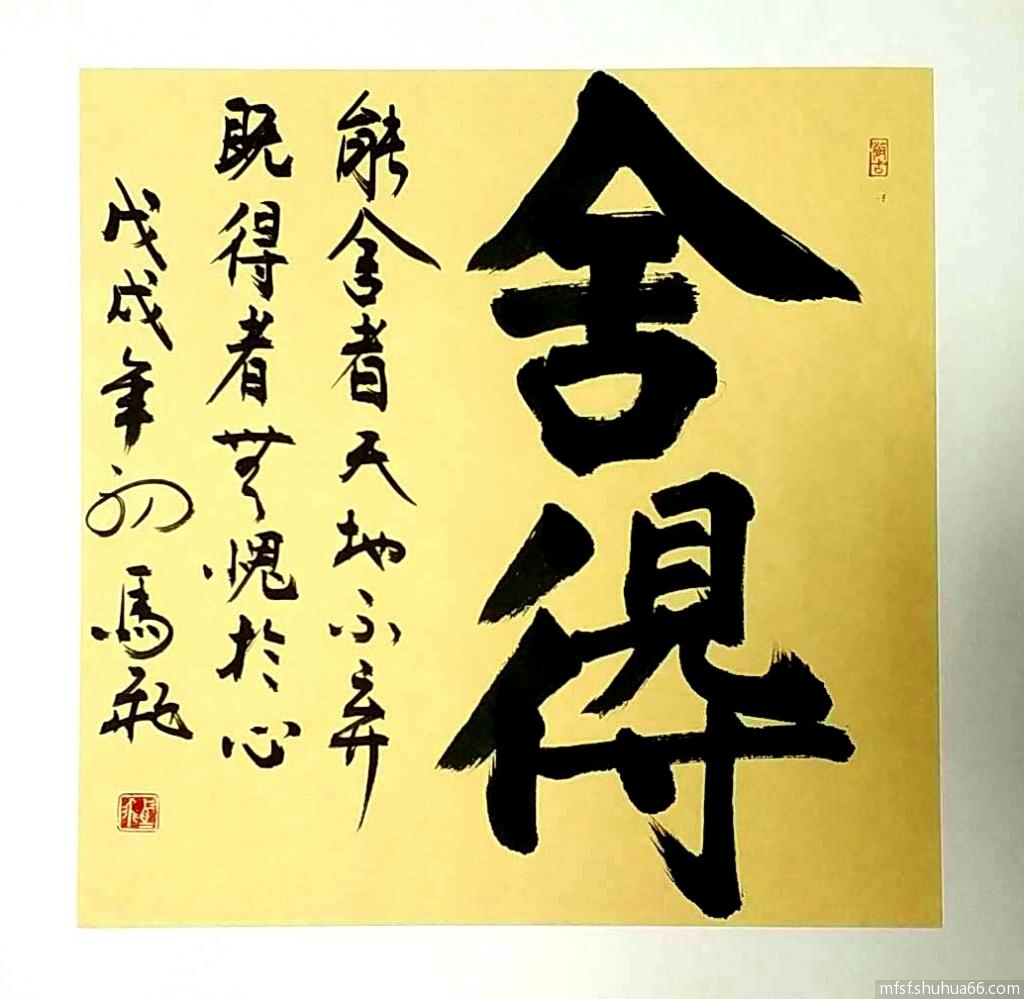 舍得
能舍者天地不弃
既得者無愧於心
戊戌年初馬飛
mfsf.shuhua66.com